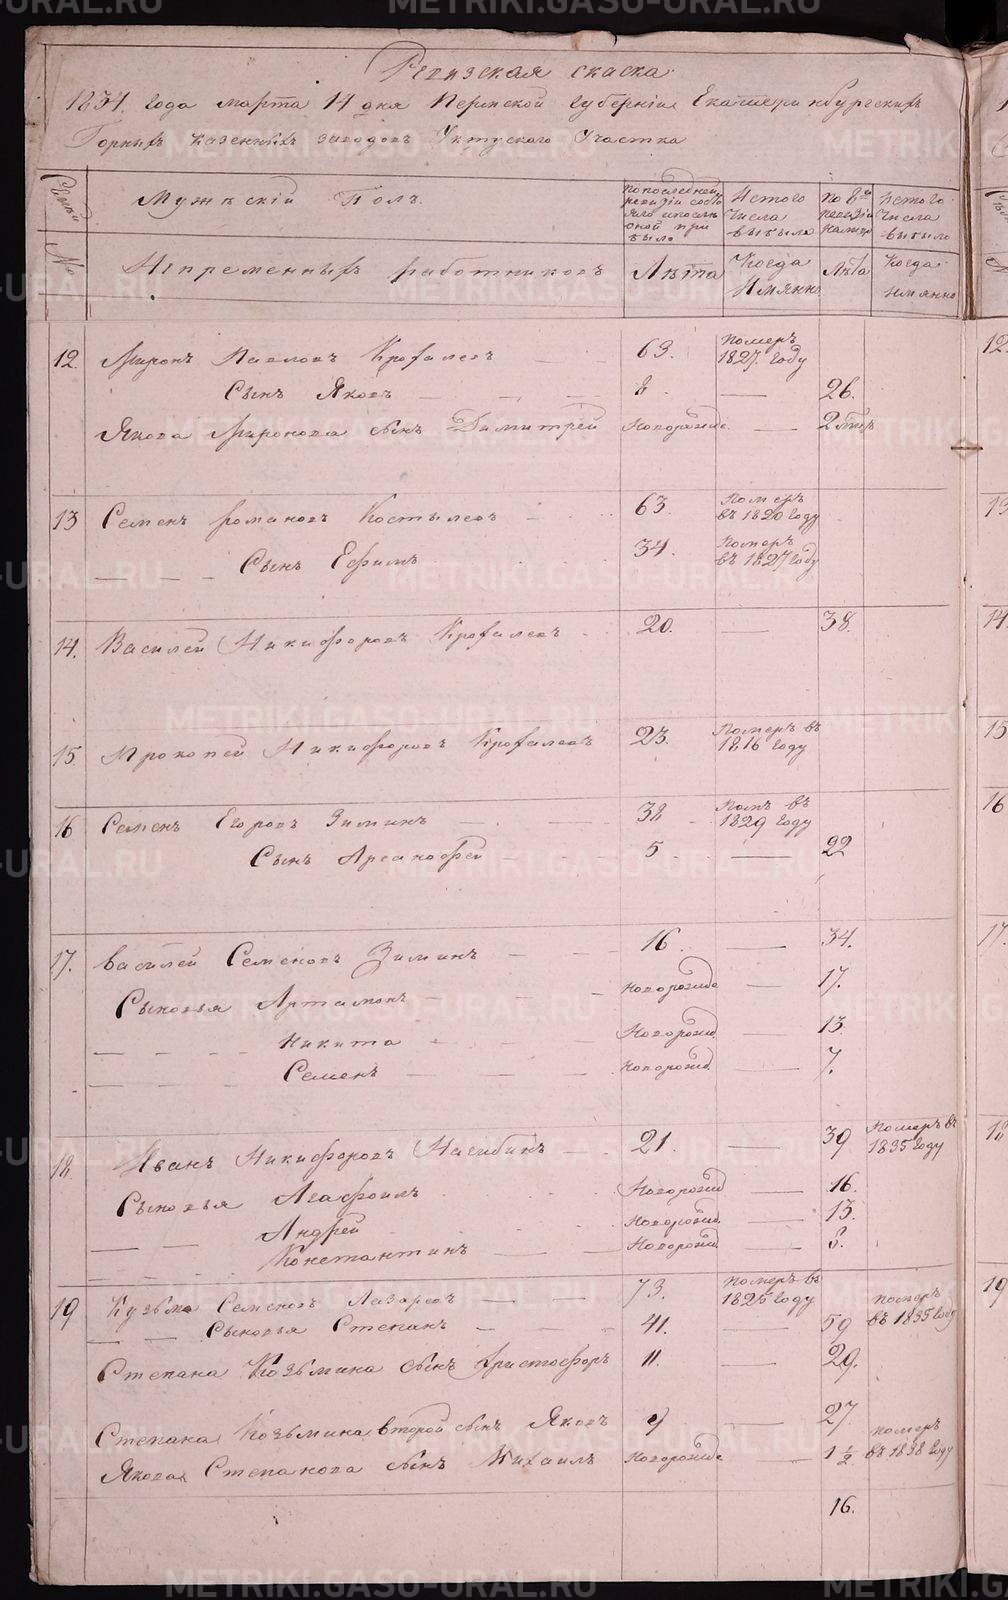 Ревизская скаска
1834. года марта 14 дня Пермской Губернии Екатеринбургскихъ
Горныхъ казенныхъ заводовъ Уктуского Участка
Семьи №
Мужескій Полъ.
По последней ревизіи состояло и после оной прибыло
Истого числа выбыло
По 8й ревизіи налицо
Истого числа выбыло
Непременныхъ работниковъ
Лѣта
Когда Имянно
Лѣта
Когда имянно
12. Миронъ Павловъ Крофалевъ 63. Померъ 1827. году
Сынъ Яковъ 8 26.
Якова Миронова сынъ Димитрей новорожде. 2
13 Семенъ романовъ Костылевъ 63. Померъ въ 1820 году
Сынъ Ефимъ 34. Померъ въ 1827 году
14. Василей Никифоровъ Крофалевъ 20. 38.
15. Прокопей Никифоровъ Крофалевъ 23. Померъ въ 1816 году
16 Семенъ Егоровъ Зиминъ 38 Помъ въ 1829 году
Сынъ 5 22
17. Василей Семеновъ Зиминъ 16. 34.
Сыновья Артамонъ новорожде 17.
Никита Новорожд. 13.
Семенъ Новорожд. 7.
18. Иванъ Никифоровъ Насибинъ 21. 39 Померъ въ 1835 году
Сыновья Агафонъ Новорожд 16.
Андрей Новорожд. 13.
Константинъ Новорожд. 8.
19 Кузьма Семеновъ Лазаревъ 73. Померъ въ 1825 году
Сыновья Степанъ 41. 59 померъ въ 1835 году
Степана Козьмина сынъ Христофоръ 11. 29.
Степана Козьмина второй сынъ Яковъ 9 27.
Якова Степанова сынъ Михаилъ новорожде 1 1/2 померъ въ 1838 году
16.
METRIKI.GASO-URAL.RU